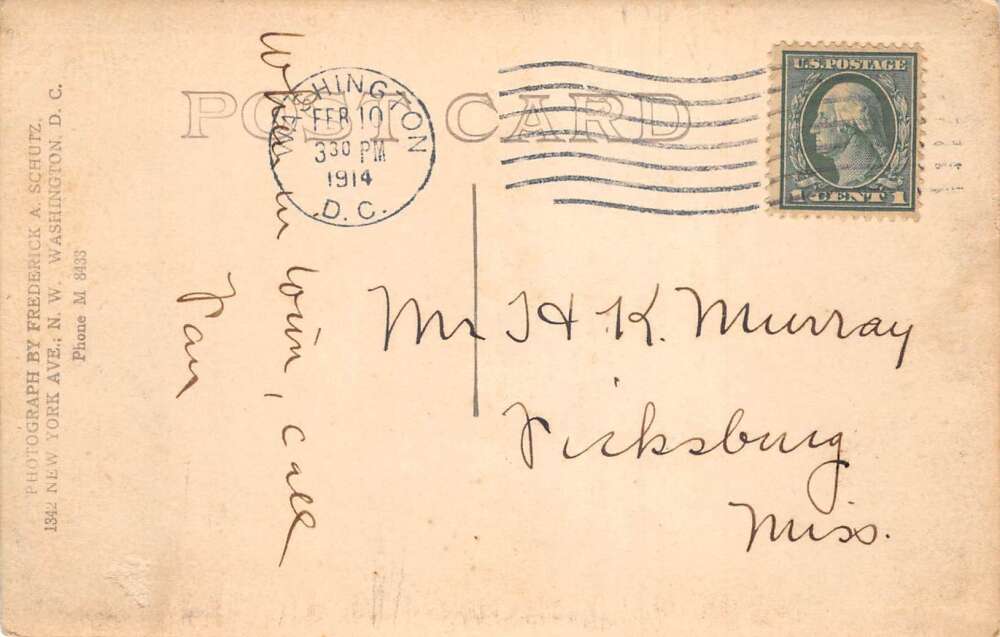 PHOTOGRAPH BY FREDERICK A. SCHUTZ,
1342 NEW YORK AVE., N. W. WASHINGTON, D. C.
Phone M 8433
POST CARD
WASHINGTON
FEB 10
3 30 PM
1914
D.C.
U.S. POSTAGE
1 CENT 1
When in town, call
Mr H K. Murray
Vicksburg
Miss.